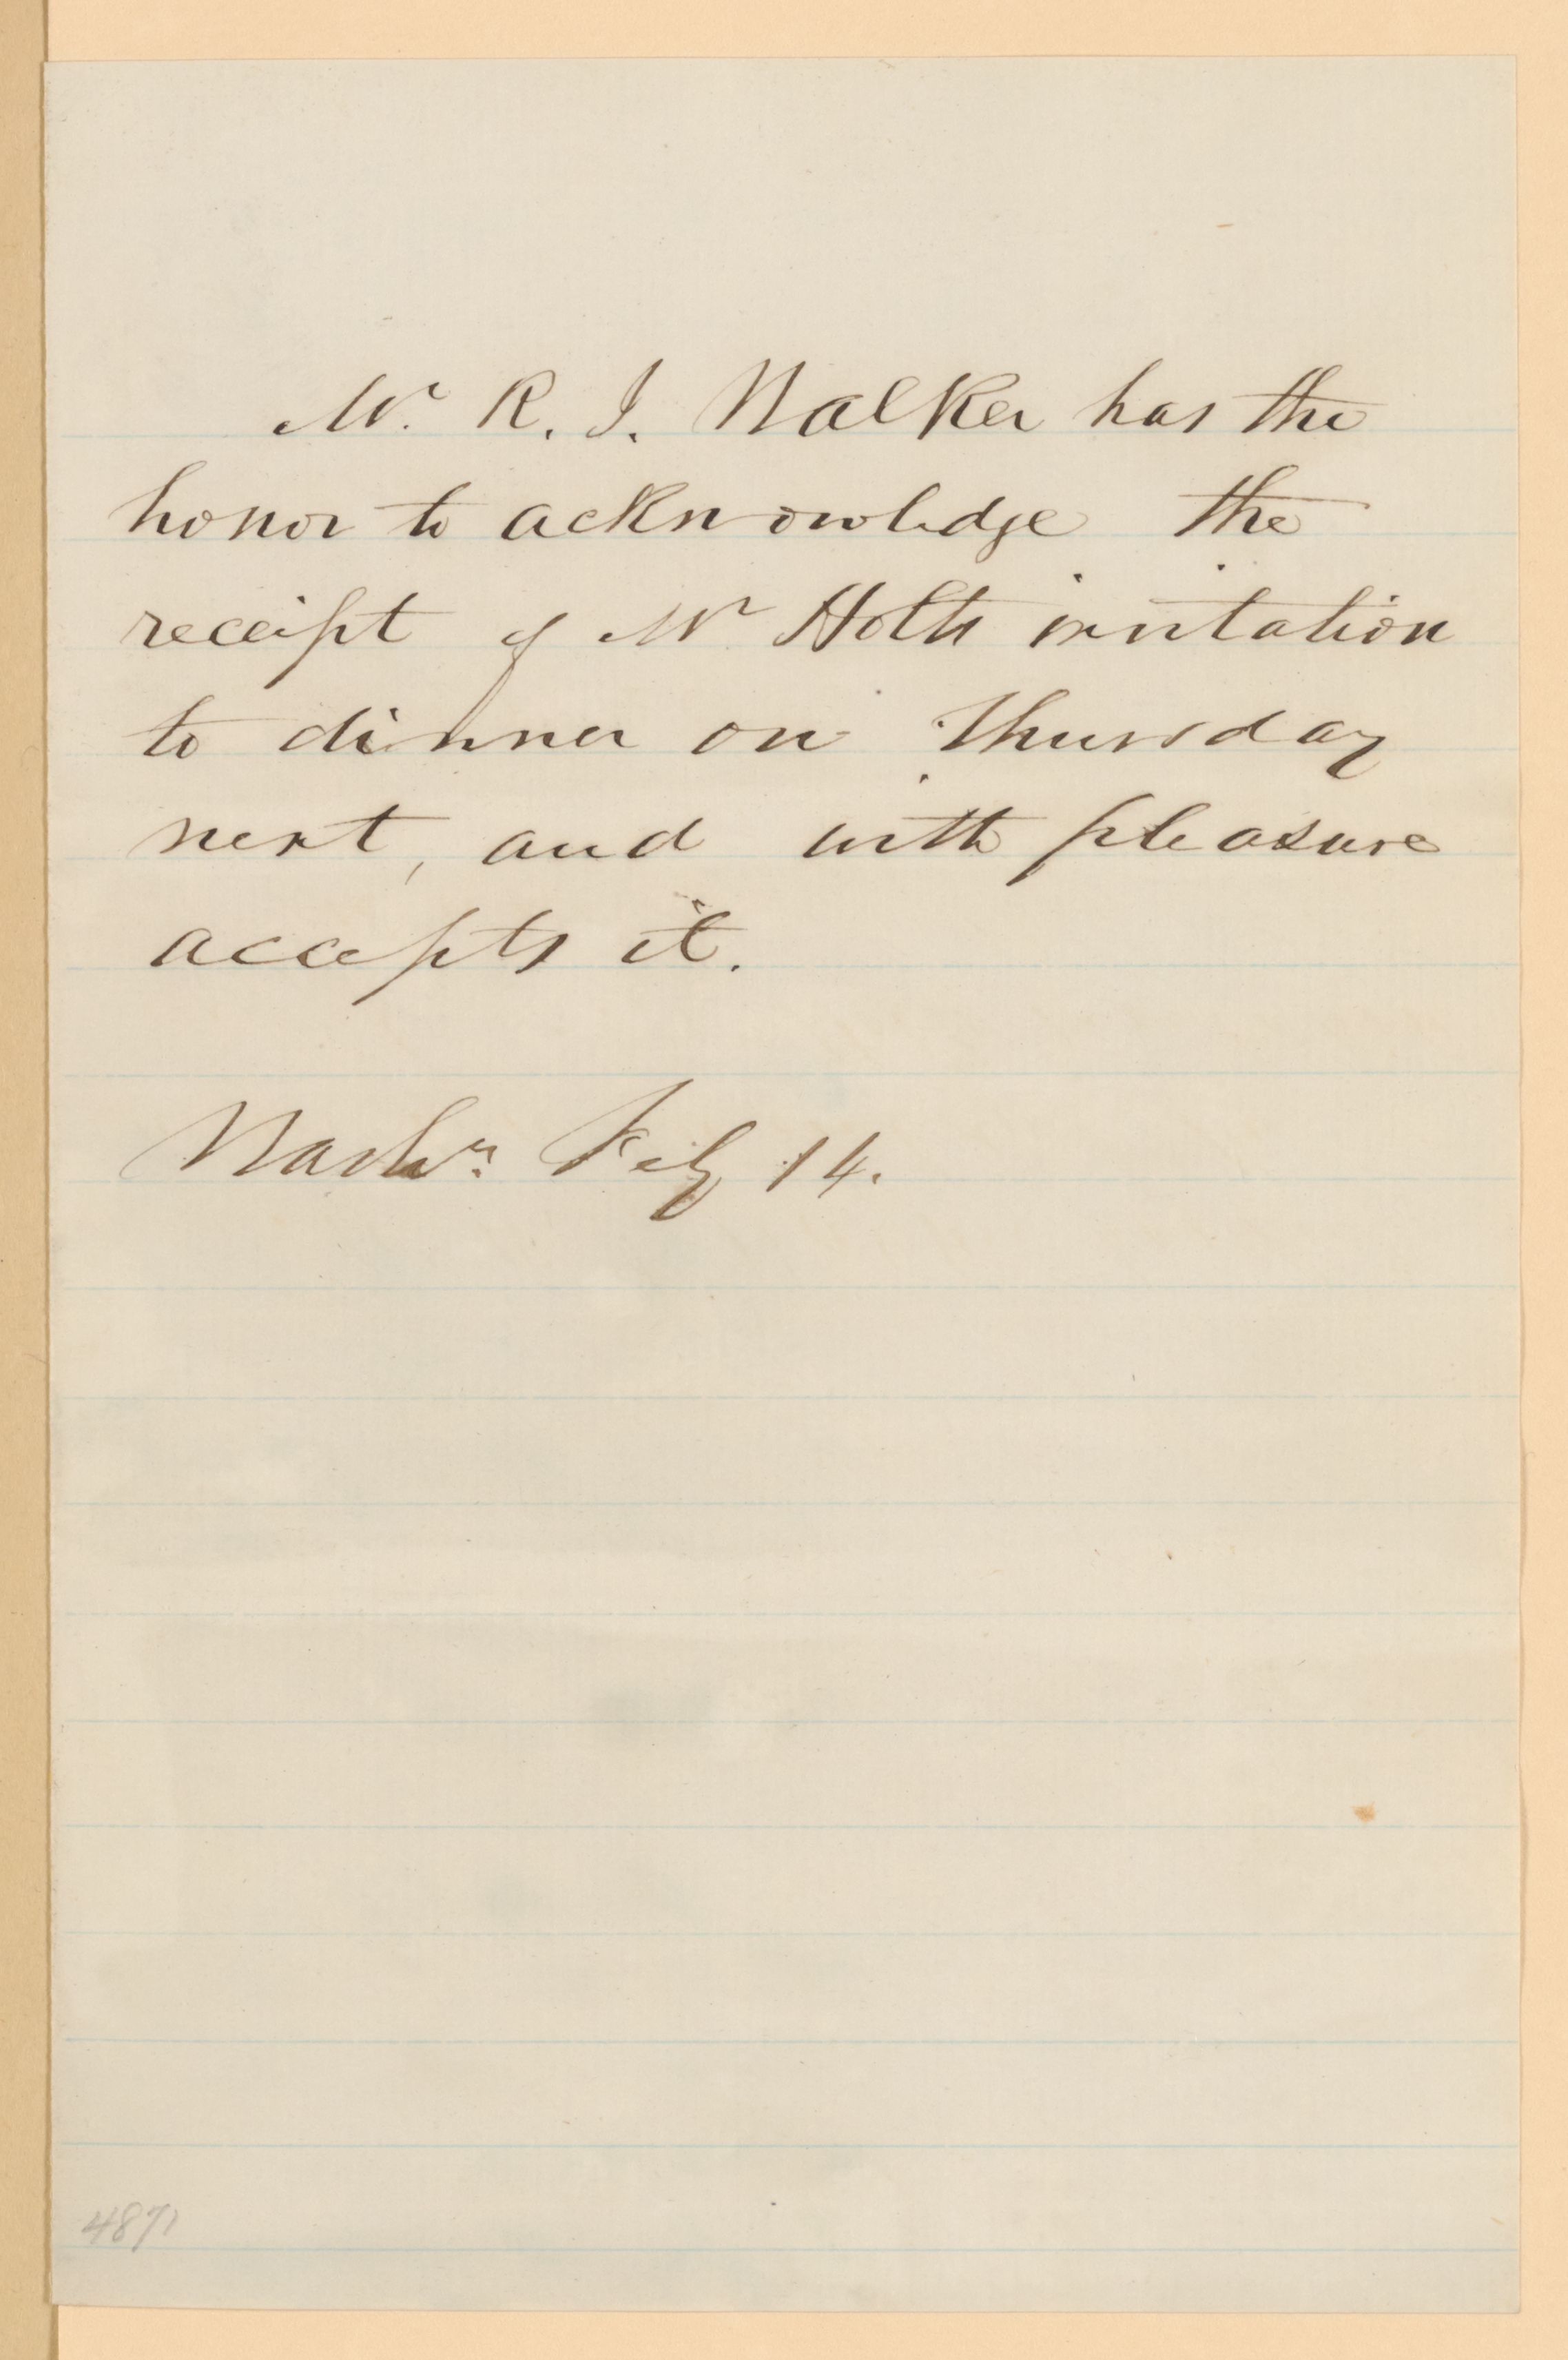 Mr. R. J. Walker has the
honor to acknowledge the
receipt of Mr Holts invitation
to dinner on Thursday
next, and with pleasure
accepts it.
Washn. Feby 14.
4871